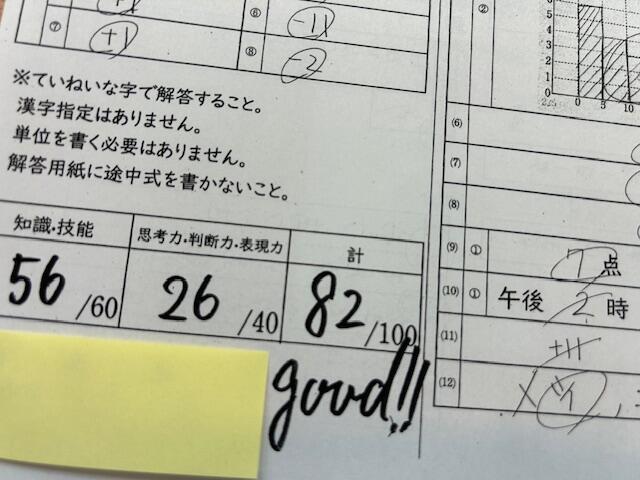 ⑥ -11
⑦ +1
⑧ -2
※ていねいな字で解答すること。
漢字指定はありません。
単位を書く必要はありません。
解答用紙に途中式を書かないこと。
知識・技能 思考力・判断力・表現力 計
56/60 26/40 82/100
good!!
②
5
4
3
2
1
0
0 5 10
(6)
(7)
(8)
(9) ① 7点
(10) ① 午後 2時
(11)
(12)